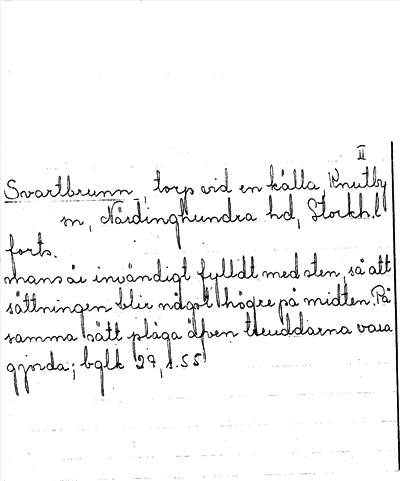 II
Svartbrunn, torp vid en källa, Knutby
sn, Närdinghundra hd, Stockh. l
forts.
mans är invändigt fylldt med sten, så att
sättningen blir något högre på midten. På
samma sätt pläga äfven treuddarna vara
gjorda; bglk 27, s. 55